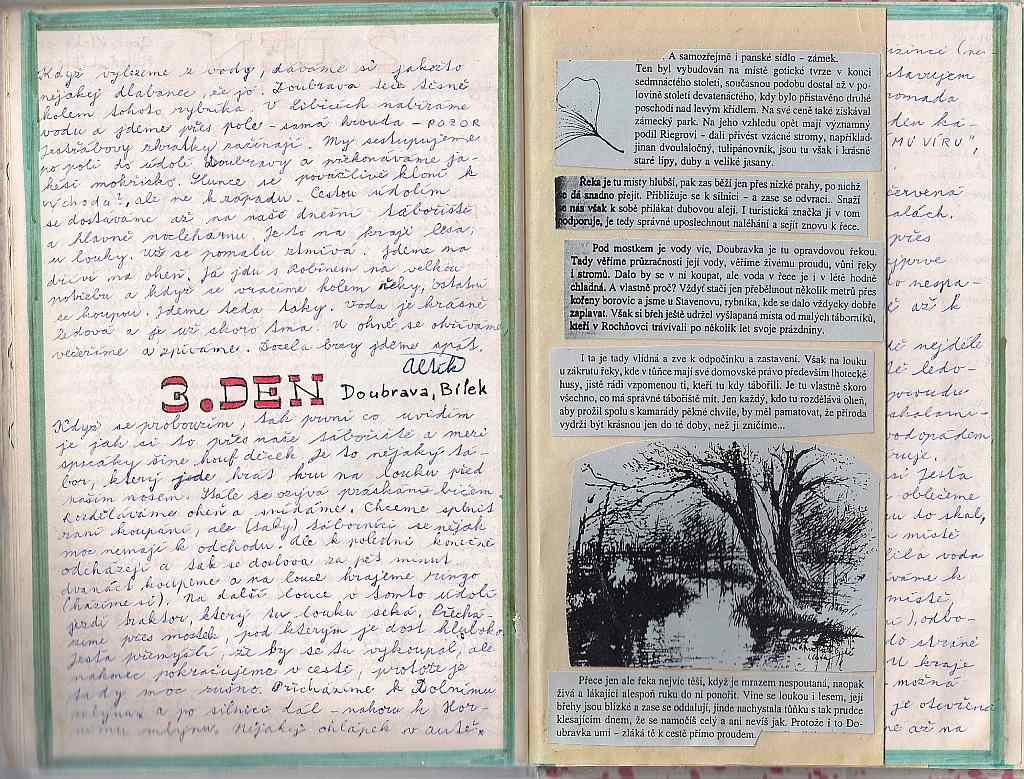 Když vylezeme z vody, dáváme si jakožto
nějakej dlabanec, že jo. Doubrava teče těsně
kolem tohoto rybníka. V Libicích nabíráme
vodu a jdeme přes pole - samá hrouda - POZOR
Jestřábovy zkratky začínají. My sestupujeme
po poli do údolí Doubravy a překonáváme ja-
kési mokřisko. Slunce se povážlivě kloní k
východu?, ale ne k západu. Cestou údolím
se dostáváme až na naše dnešní tábořiště
a hlavně noclehárnu. Je to na kraji lesa,
u louky. Už se pomalu stmívá. Jdeme na
dříví na oheň. Já jdu s Robinem na velkou
potřebu a když se vracíme kolem řeky, ostatní
se koupou. Jdeme teda taky. Voda je krásně
ledová a je už skoro tma. U ohně se ohříváme
večeříme a zpíváme. Docela brzy jdeme spát.
3. DEN Doubrava, Bílek
Když se probouzím, tak první co uvidím
je jak si to přes naše tábořiště a mezi
spacáky šine houf díček. Je to nějaký tá-
bor, který jde hrát hru na louku před
naším nosem. Stále se ozývá práskání bičem.
Rozděláváme oheň a snídáme. Chceme splnit
ranní koupání, ale (taky) táborníci se nějak
moc nemají k odchodu. Ale k polední konečně
odcházejí a tak se doslova za pět minut
dvanáct koupeme a na louce hrajeme ringo
(házíme si). Na další louce v tomto údolí
jezdí traktor, který tu louku seká. Přechá-
zíme přes mostek, pod kterým je dost hluboko
Jesta přemýšlí, že by se tu vykoupal, ale
nakonec pokračujeme v cestě, protože je
tady moc rušno. Přicházíme k Dolnímu
mlýnu a po silnici dál - nahoru k Hor-
nímu mlýnu. Nějaký chlápek v autě
A samozřejmě i panské sídlo - zámek.
Ten byl vybudován na místě gotické tvrze v konci
sedmnáctého století, současnou podobu dostal až v po-
lovině století devatenáctého, kdy bylo přistavěno druhé
poschodí nad levým křídlem. Na své ceně také získával
zámecký park. Na jeho vzhledu opět mají významný
podíl Riegrovi - dali přivést vzácné stromy, například
jinan dvoulaločný, tulipánovník, jsou tu však i krásné
staré lípy, duby a veliké jasany.
Řeka je tu místy hlubší, pak zas běží jen přes nízké prahy, po nichž
se dá snadno přejít. Přibližuje se k silnici - a zase se odvrací. Snaží
se nás však k sobě přilákat dubovou alejí. I turistická značka jí v tom
podporuje, je tedy správné uposlechnout naléhání a sejít znovu k řece.
Pod mostkem je vody víc, Doubravka je tu opravdovou řekou.
Tady věříme průzračnosti její vody, věříme živému proudu, vůni řeky
i stromů. Dalo by se v ní koupat, ale voda v řece je i v létě hodně
chladná. A vlastně proč? Vždyť stačí jen přeběhnout několik metrů přes
kořeny borovic a jsme u Stavenovu, rybníka, kde se dalo vždycky dobře
zaplavat. Však si břeh ještě udržel vyšlapaná místa od malých táborníků,
kteří v Rochňovci trávívali po několik let svoje prázdniny.
I ta je tady vlídná a zve k odpočinku a zastavení. Však na louku
u zákrutu řeky, kde v tůňce mají své domovské právo především lhotecké
husy, jistě rádi vzpomenou ti, kteří tu kdy tábořili. Je tu vlastně skoro
všechno, co má správné tábořiště mít. Jen každý, kdo tu rozdělává oheň,
aby prožil spolu s kamarády pěkné chvíle, by měl pamatovat, že příroda
vydrží být krásnou jen do té doby, než ji zničíme...
Přece jen ale řeka nejvíc těší, když je mrazem nespoutaná, naopak
živá a lákající alespoň ruku do ní ponořit. Vine se loukou i lesem, její
břehy jsou blízké a zase se oddalují, jinde nachystala tůňku s tak prudce
klesajícím dnem, že se namočíš celý a ani nevíš jak. Protože i to Do-
ubravka umí - zláká tě k cestě přímo proudem.
stavujem
omada
MUVÍRU",
červená
alách.
přes
ejprve
až k
nejdéle
ledo-
proudu
skalami-
vodopádem,
Jesta
oblečeme
do skal,
místě
voda
váme k
místě
odbo-
do stráně
U kraje
možná
je otevřená
me až na